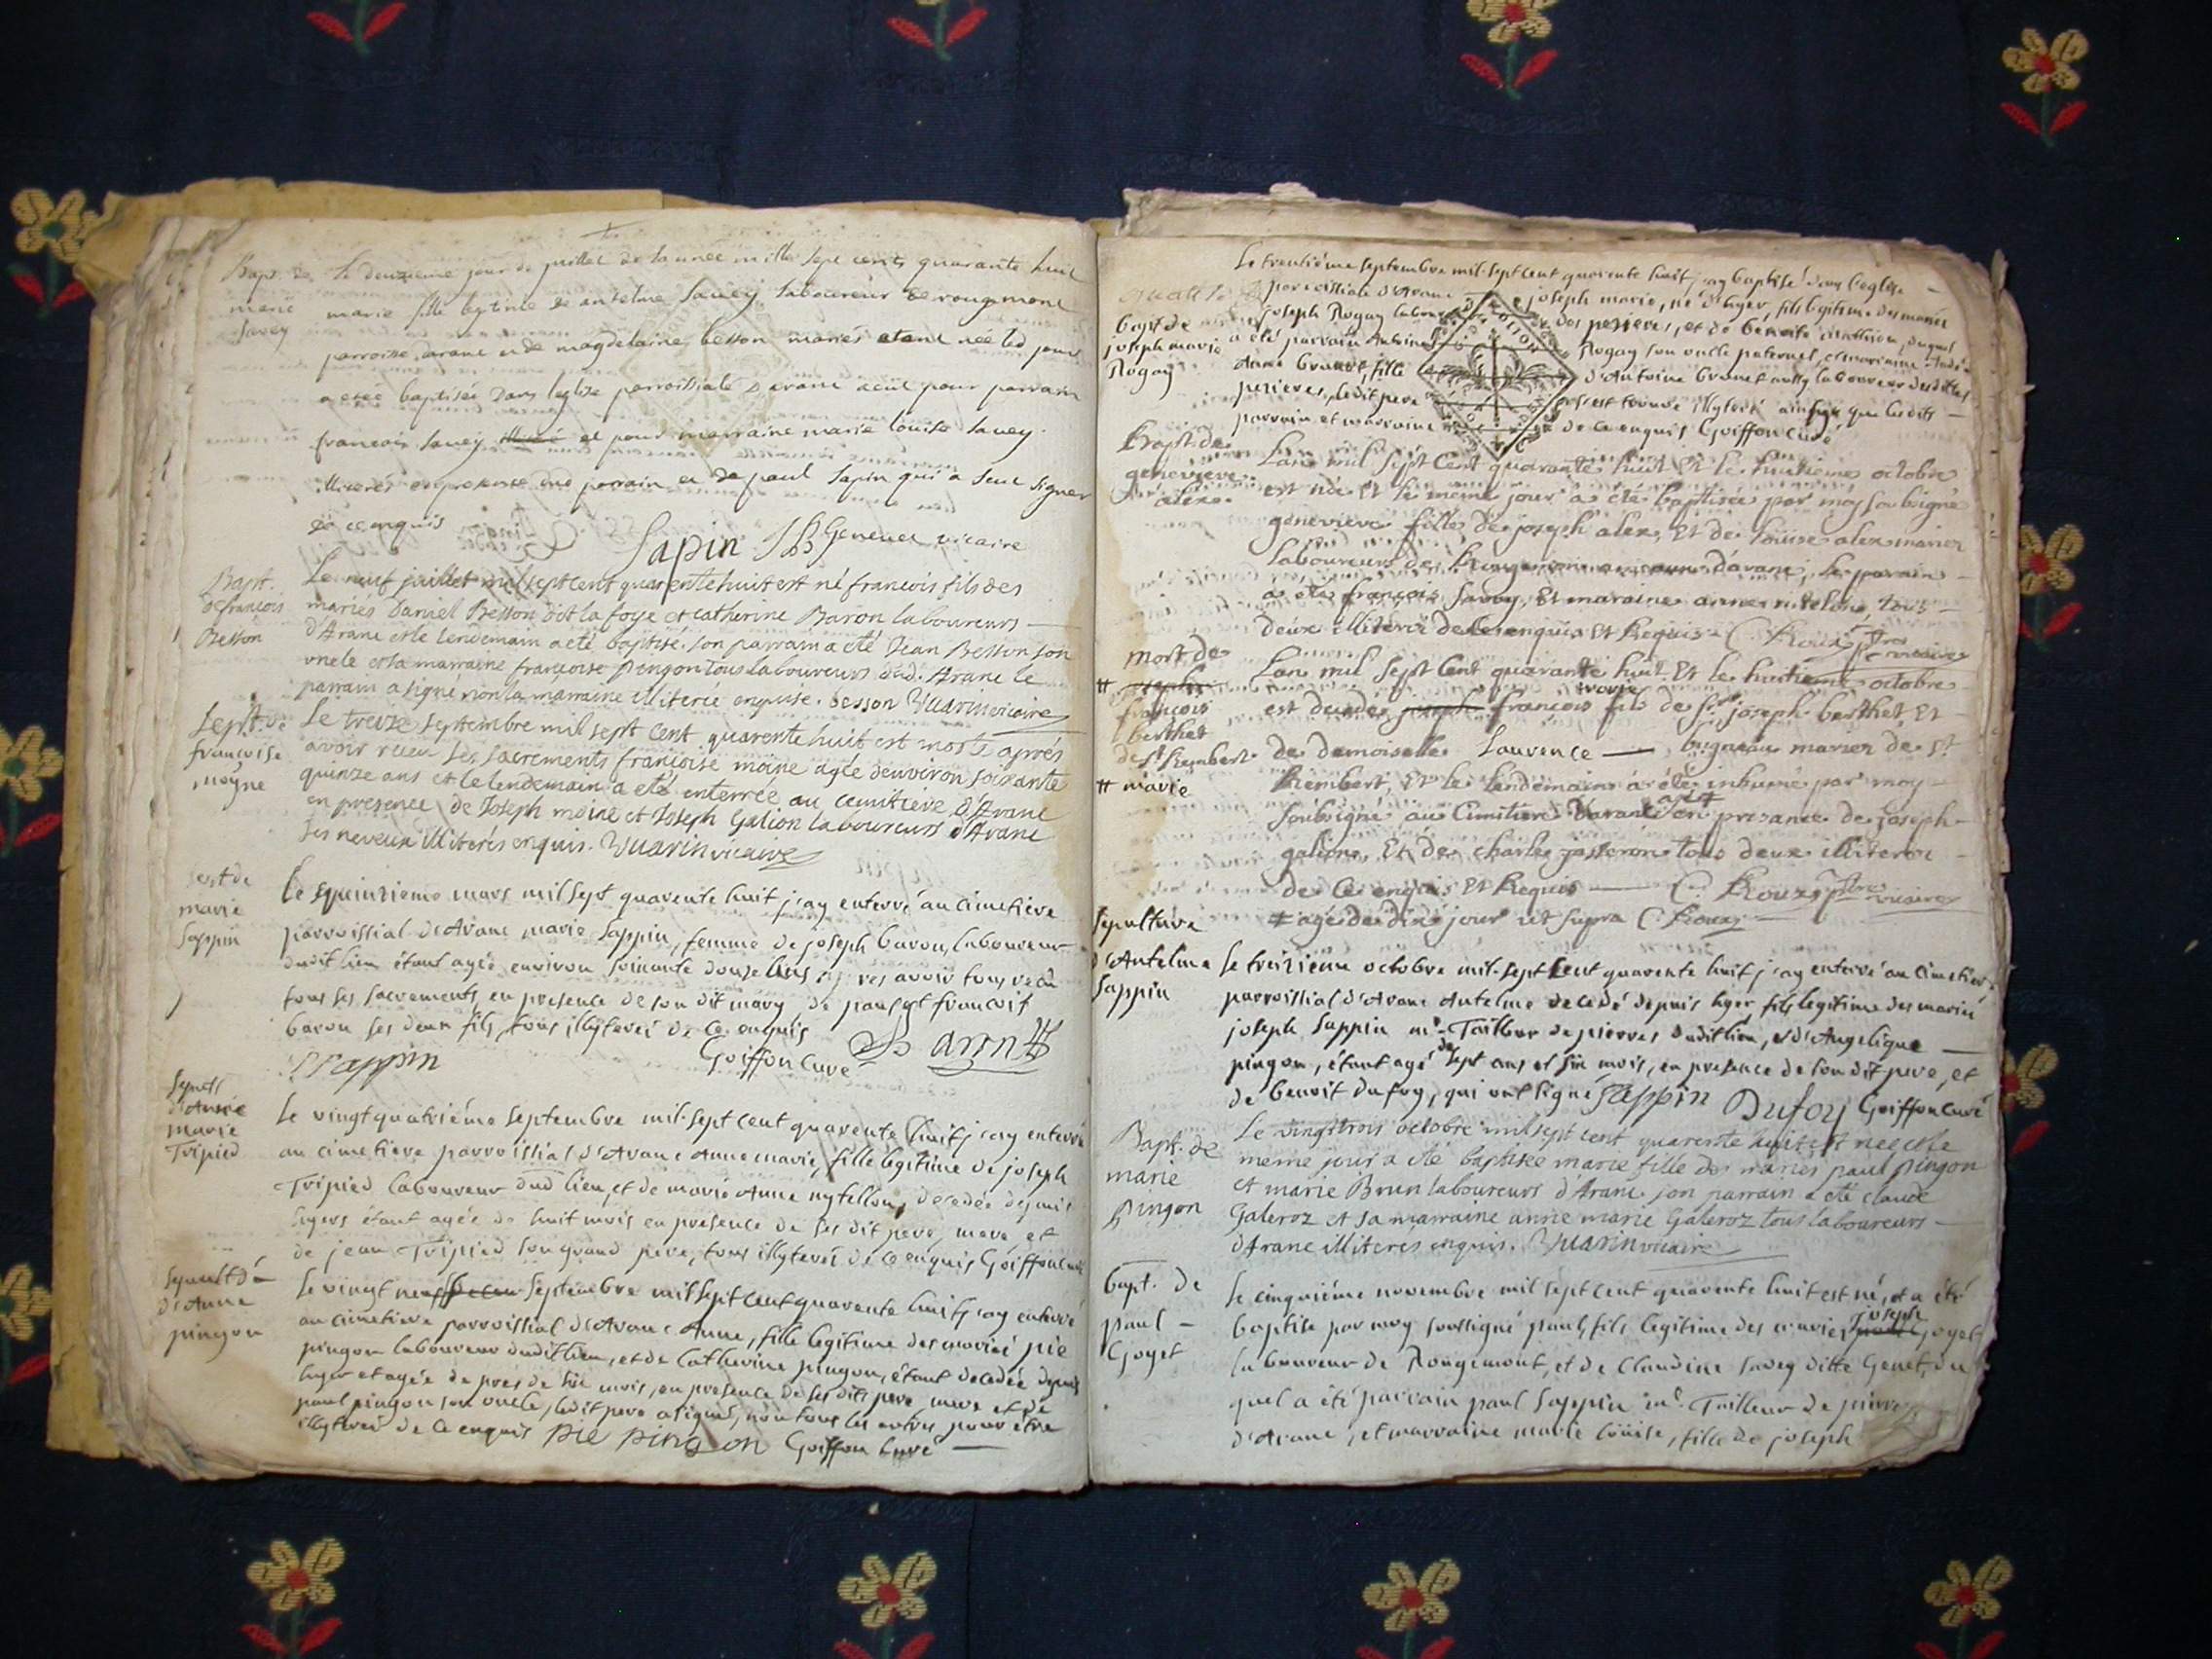 Bapt. de
marie
Savey
Le deuxieme jour de juillet de lannée mille sept cents quarante huit
marie fille legitime de antelme Savey laboureur de rougemont
parroisse darane et de magdelaine besson mariés etant née led jour
a etée baptisée dans leglise parroissiale darane aeut pour parrain
francois Savey et pour marraine marie louise Savey
illiterés en presence dud parrain et de paul Sapin qui a seul signer
de ce enquis
Sapin JB Genevet vicaire
Bapt.
de francois
Besson
Le neuf juillet mil sept cent quarente huit est né francois fils des
mariés daniel Besson dot la foye et catherine Baron laboureurs
d'Arane et le lendemain a eté baptisé. son parrain a été Jean Besson son
oncle et sa marraine françoise pingon tous laboureurs dud. Arane le
parrain a signé non la marraine illiterée enquise. besson Vuarin vicaire
Sepult. de
francoise
moyne
Le treize septembre mil sept cent quarente huit est morte aprés
avoir receu ses sacrements francoise moine agée denviron soixante
quinze ans et le lendemain a eté enterrée au cemitiere d'Arane
en presence de Joseph moine et Joseph Galion laboureurs d'Arane
ses neveux illiterés enquis. Vuarin vicaire
sept de
marie
Sappin
Le quinzieme mars mil sept quarente huit j'ay enterré au cimetiere
parroissial d'Arane marie Sappin, femme de joseph baron, laboureur
dudit lieu étant agée environ soixante douze ans après avoir tous reçu
tous ses sacrements, en presence de son dit mary de paul et francois
baron ses deux fils, tous illyterés de ce enquis
P Sappin Goiffon Curé
Sepult
d'Anne
marie
Tripied
Le vingt quatriéme septembre mil-sept cent quarente huit j'ay enterré
au cimetiere parroissial d'Arane Anne marie, fille legitime de joseph
Tripied laboureur dud lieu, et de marie Anne mytellon, decedée depuis
hyers étant agée de huit mois en presence de ses dit pere, mere et
de jean Tripied son grand pere, tous illyterés de ce enquis Goiffon curé
Sepult d
d'Anne
pingon
Le vingt neuf septembre mil sept cent quarente huit j'ay enterré
au cimetiere parroissial d'Arane Anne, fille legitime des mariés pie
pingon laboureur dudit lieu, et de Catherine pingon, étant decedée depuis
hyer et agée de pres de six mois, en presence de ses dits pere, mere et de
paul pingon son oncle, ledit pere a signé, non tous les autres pour être
illyterés de ce enquis pie pingon Goiffon Curé
bapt de
joseph marie
Rogay
Le trentiéme septembre mil-sept cent quarente huit j'ay baptisé dans l'eglise
parroissiale d'Arane joseph marie, né d'hyer, fils legitime des mariés
joseph Rogay labour des perieres, et de benoite mathieu, duquel
a été parrain Antoine Rogay son oncle paternel, et marraine
Anne brunet, fille d'Antoine brunet laboureur desdites
perieres, ledit pere s'est trouvé illyteré ainsy que lesdits
parrain et marraine de ce enquis Goiffon Curé
Bapt. de
genevieve
alex
Lan mil Sept Cent quarante huit Et le huitieme octobre
est née Et le meme jour a été baptisée par moy soubsigné
genevieve fille de joseph alex, Et de louise alex mariés
laboureurs de Rougemont d'arane, le parain
a eté francois Savey, Et maraine anne mitelon, tous
deux illiterés de ce enquis Et Requis C. Roux ptre vicaire
mort de
francois
berthet
de St Rembert
# marie
Lan mil Sept Cent quarante huit Et le huitieme octobre
est decedé francois marie fils de Sr. joseph berthet Et
de demoiselle Laurence bugniau mariés de St
Rembert, Et le lendemain a été inhumé par moy
soubsigné au Cimitiere d'arane en presance de joseph
galion, Et de charles jasseron tous deux illiterés
de Ce enquis Et Requis C. Roux ptre vicaire
# agé de dix jour ut supra C. Roux
Sepulture
d'Antelme
Sappin
Le treizieme octobre mil-sept cent quarente huit j'ay enterré au cimetiere
parroissial d'Arane Antelme decedé depuis hyer fils legitime des mariés
joseph Sappin me. Tailleur de pierres dudit lieu, et d'Angelique
pingon, étant agé de sept ans et six mois, en presence de son dit pere, et
de benoit dufoy, qui ont signé Sappin Dufoy Goiffon curé
Bapt. de
marie
pingon
Le vingt trois octobre mil sept cent quarente huit est née et le
meme jour a été baptisée marie fille des mariés paul pingon
et marie Brun laboureurs d'Arane. son parrain a été claude
Galeroz et sa marraine anne marie Galeroz tous laboureurs
d'Arane illiterés enquis. Vuarin vicaire
bapt. de
paul
Goyet
Le cinquiéme novembre mil sept cent quarente huit est né, et a été
baptisé par moy soussigné paul, fils legitime des mariés joseph Goyet
laboureur de Rougemont, et de Claudine Savey ditte Genet, du
quel a été parrain paul Sappin me. Tailleur de pierre
d'Arane, et marraine marie loüise, fille de joseph